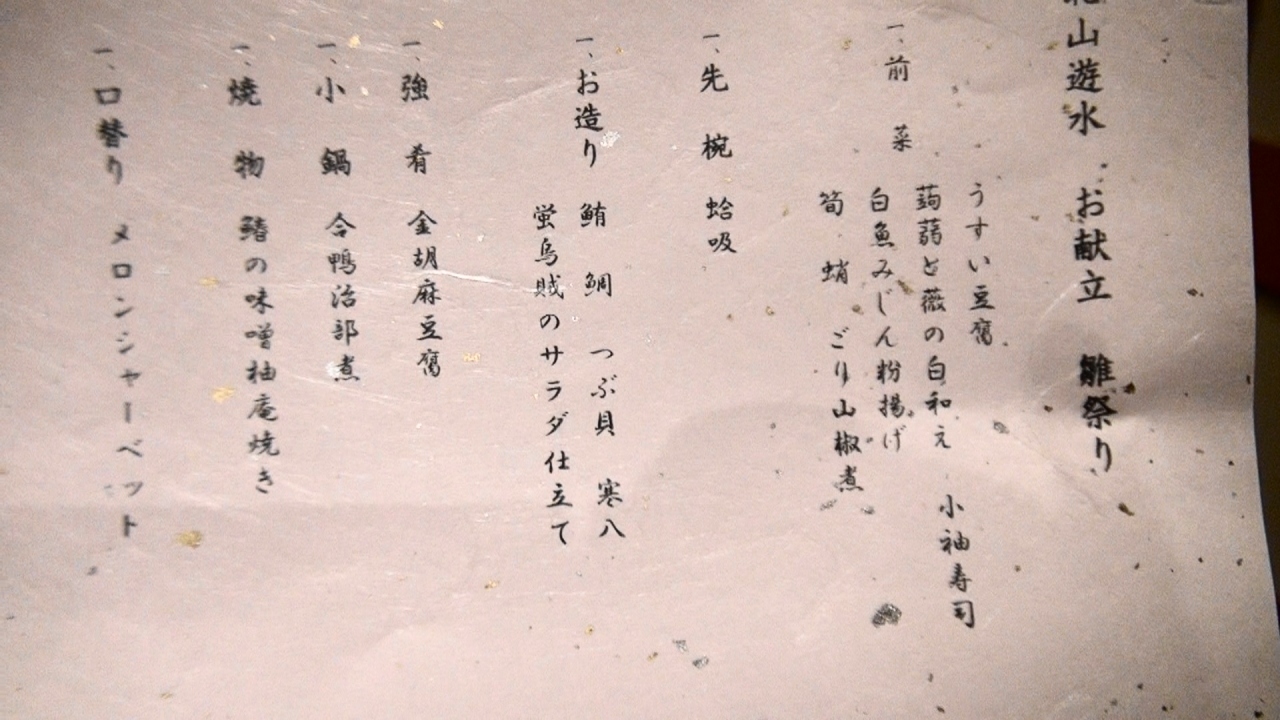 山遊水 お献立 雛祭り
一、前菜
うすい豆腐
蒟蒻と薇の白和え 小袖寿司
白魚みじん粉揚げ
筍 蛸 ごり山椒煮
一、先椀 蛤吸
一、お造り 鮪 鯛 つぶ貝 寒八
蛍烏賊のサラダ仕立て
一、強肴 金胡麻豆腐
一、小鍋 合鴨治部煮
一、焼物 鰆の味噌柚庵焼き
一、口替り メロンシャーベット